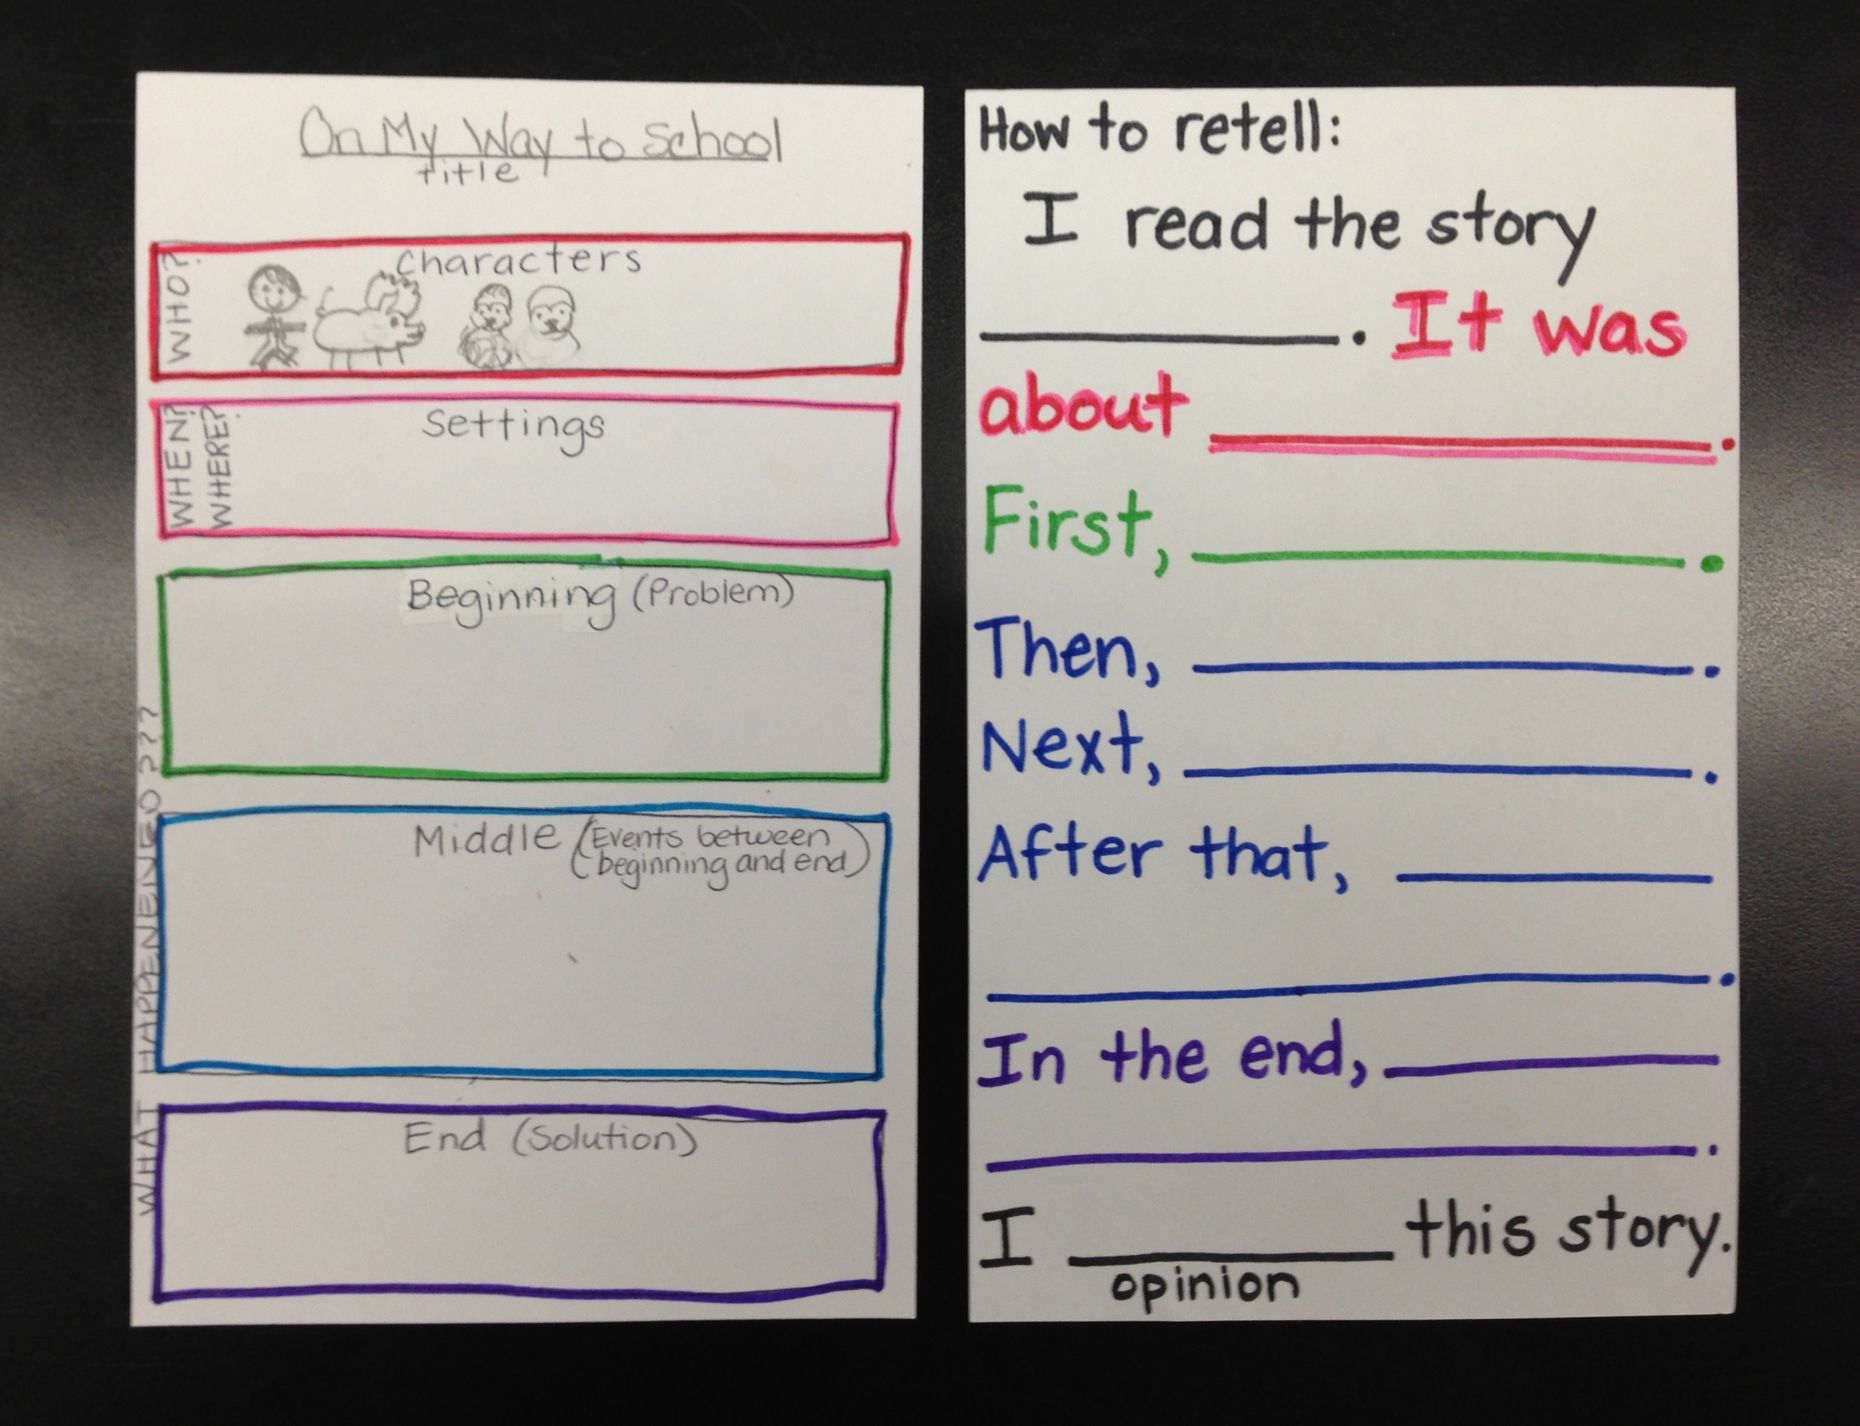 On My Way to School
title
WHO?
Characters
WHEN?
WHERE?
Settings
WHAT HAPPENENED???
Beginning (Problem)
Middle (Events between
beginning and end)
End (Solution)
How to retell:
I read the story
. It was
about .
First, .
Then, .
Next, .
After that,
.
In the end,
.
I this story.
opinion